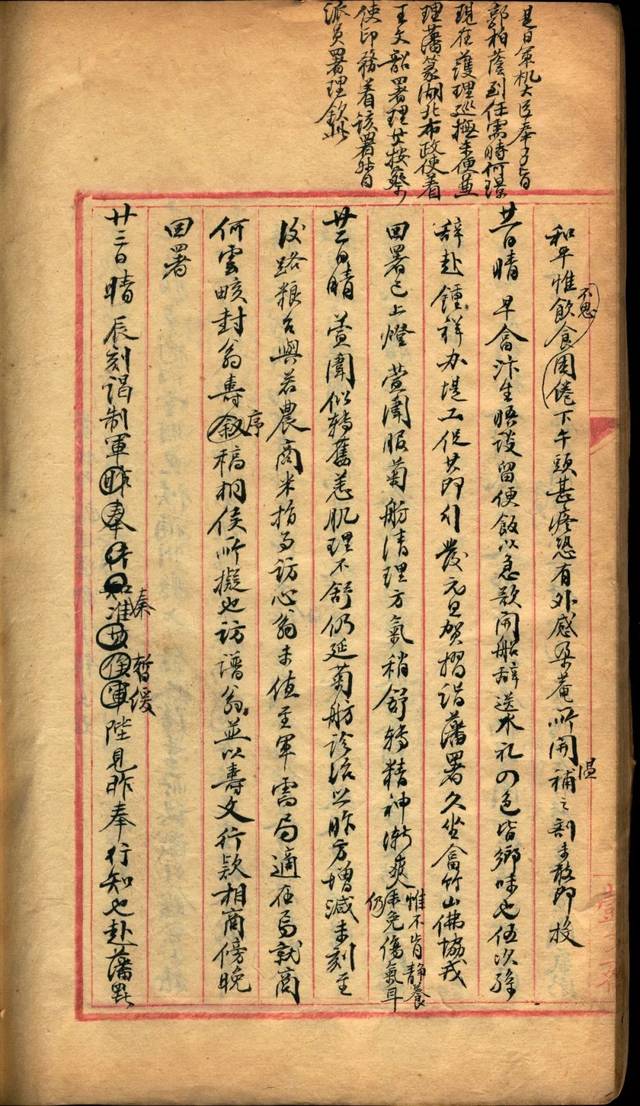 是日軍机大臣奉旨
郭柏蔭到任需時何璟
現在護理巡撫未便兼
理藩篆湖北布政使着
王文韶署理其按察
使印務着該署督
派員署理欽此
和平惟飲食不思困倦下午頭甚疼恐有外感朶菴所開補之劑未敢即投
廿一日晴 早會汴生晤談留便飯以急欲開船辭送水礼四色皆鄉味也伍次蓀
辭赴鍾祥办堤工促其即行發元旦賀摺詣藩署久坐會竹山佛協戎
回署已上燈 萱闈服菊舫清理方氣稍舒暢精神漸爽惟不肯靜養仍未免傷氣耳
廿二日晴 萱闈似轉舊恙肌理不舒仍延菊舫診治以昨方增減未刻至
後路粮台與若農商米指事訪心翁未值至軍需局適在局就商
何雲畡封翁壽序稿桐侯所擬也訪譜翁並以壽文行款相商傍晚
回署
廿三日晴 辰刻謁制軍昨奉准奏暫緩陛見昨奉行知也赴藩署